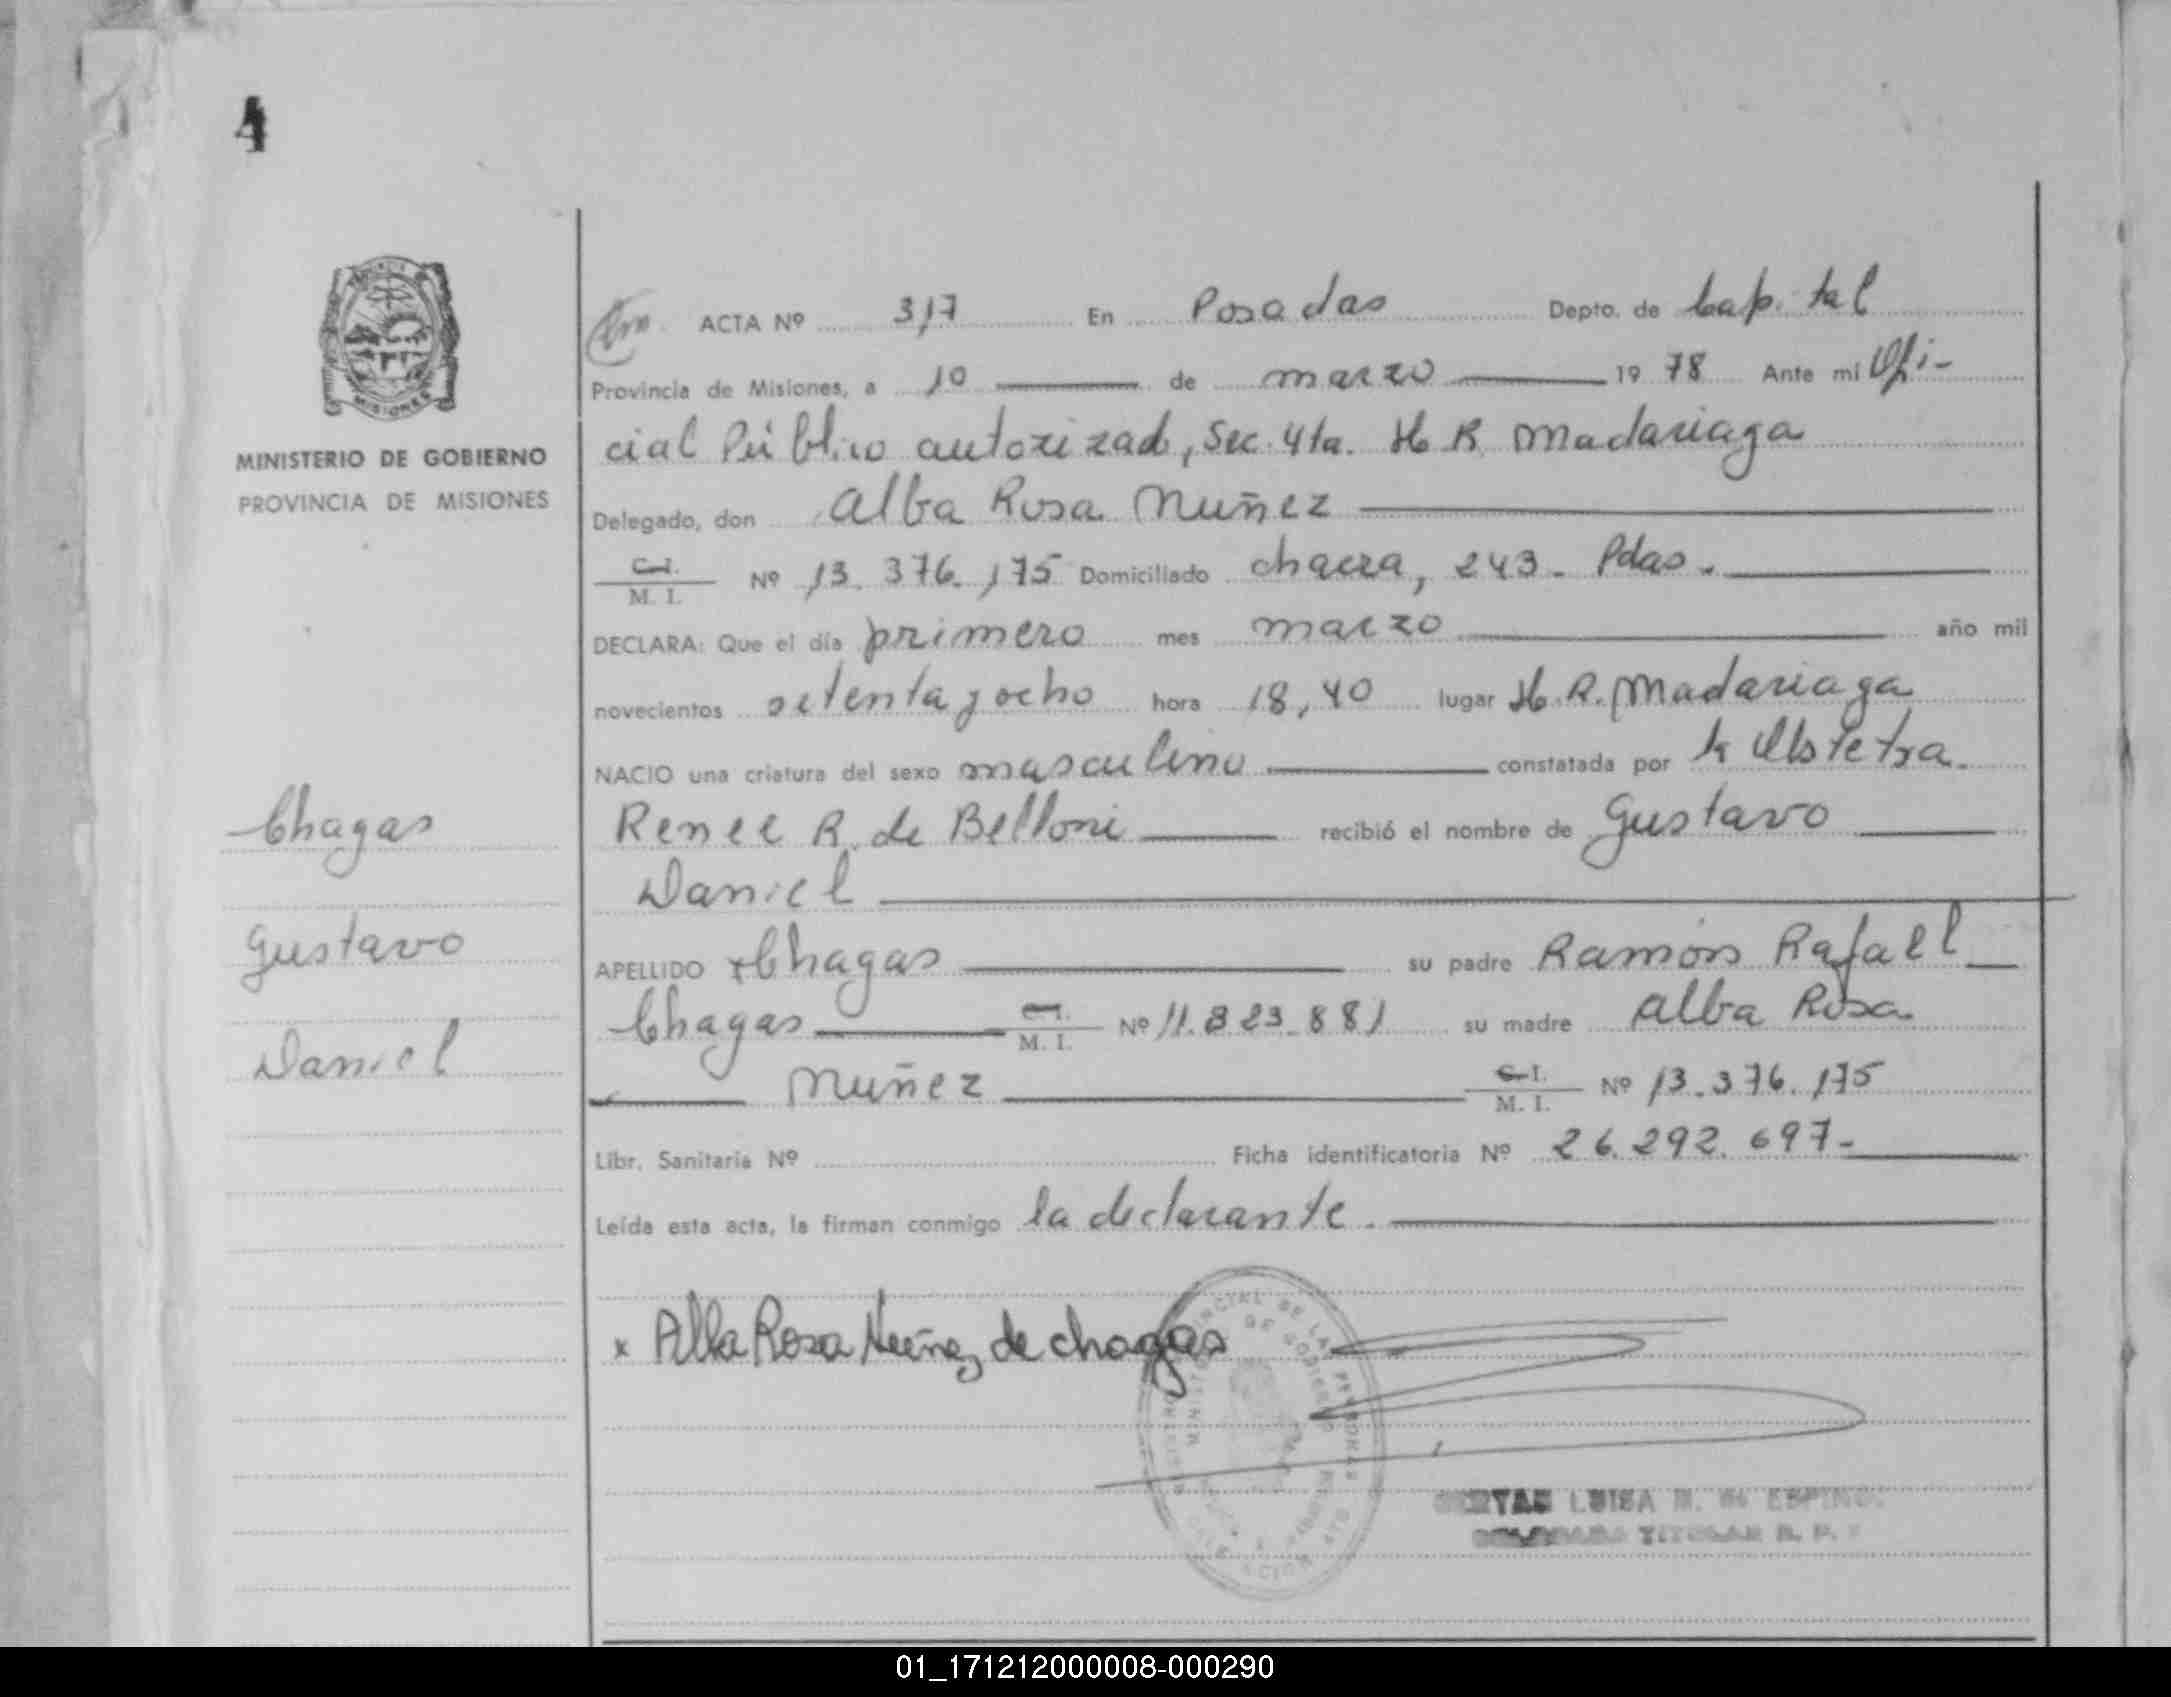 4
MINISTERIO DE GOBIERNO
PROVINCIA DE MISIONES
MISIONES
ACTA Nº 317 En Posadas Depto. de Capital
Provincia de Misiones, a 10 de marzo 1978 Ante mi Ofi-
cial Público autorizado, Sec. 4ta. H R Madariaga
Delegado, don Alba Rosa Nuñez
C.I.
M. I. Nº 13.376.175 Domiciliado chacra, 243- Pdas.
DECLARA: Que el día primero mes marzo año mil
novecientos setenta y ocho hora 18,40 lugar H.R. Madariaga
NACIO una criatura del sexo masculino constatada por la Obstetra.
Renee R. de Belloni recibió el nombre de Gustavo
Daniel
APELLIDO Chagas su padre Ramón Rafael
Chagas C.I. M. I. Nº 11.823.881 su madre Alba Rosa
Nuñez C.I. M. I. Nº 13.376.175
Libr. Sanitaria Nº Ficha identificatoria Nº 26.292.697-
Leída esta acta, la firman conmigo la declarante.
Chagas
Gustavo
Daniel
x Alba Rosa Nuñez de chagas
LUISA
TITULAR
01_171212000008-000290